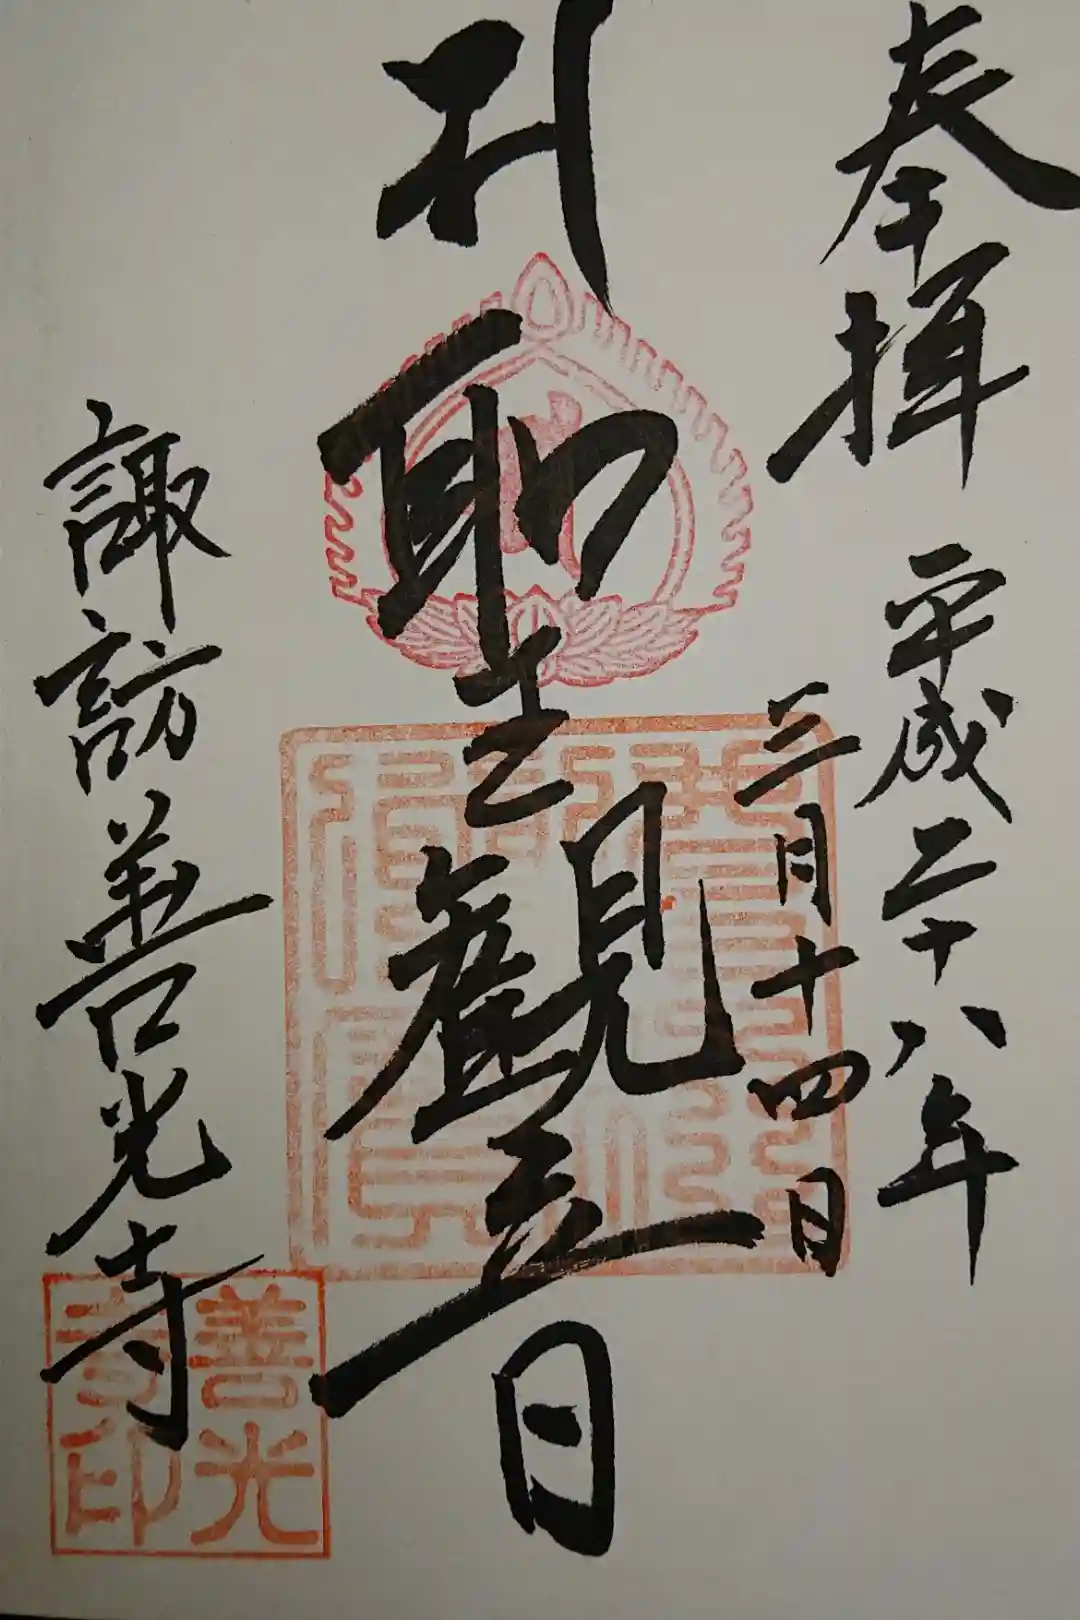 奉拝　平成二十八年
三月十四日
聖觀音
諏訪善光寺
善光
寺印